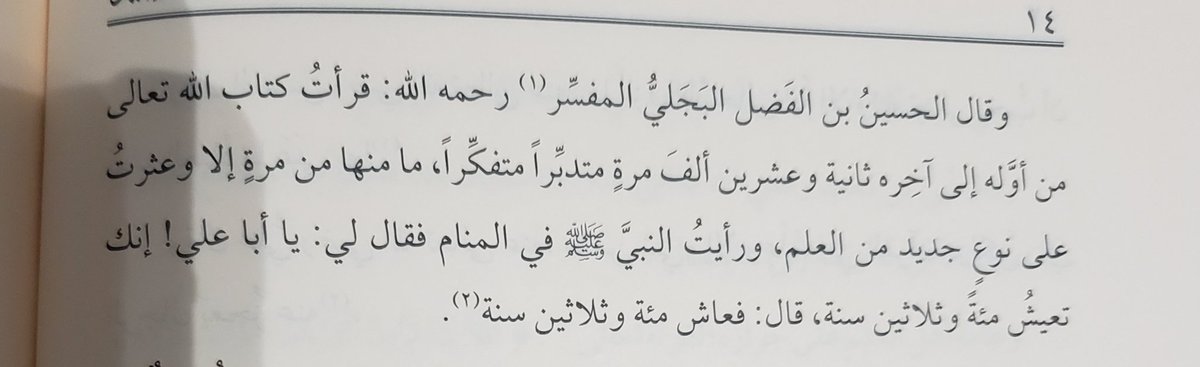 ١٤
وقال الحسينُ بن الفَضل البَجَليُّ المفسِّر(١) رحمه الله: قرأتُ كتاب الله تعالى
من أوَّله إلى آخِره ثانية وعشرين ألفَ مرةٍ متدبِّراً متفكِّراً، ما منها من مرةٍ إلا وعثرتُ
على نوعٍ جديد من العلم، ورأيتُ النبيَّ ﷺ في المنام فقال لي: يا أبا علي! إنك
تعيشُ مئةً وثلاثين سنة، قال: فعاش مئة وثلاثين سنة(٢).